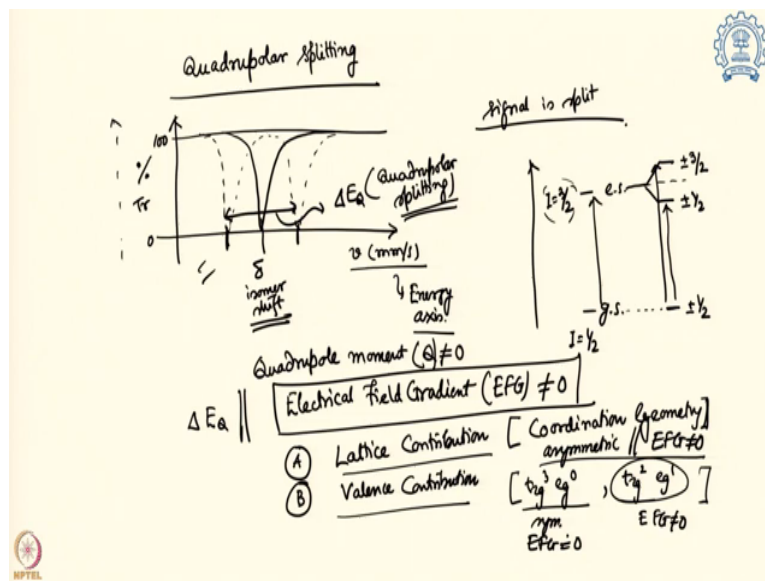 Quadrupolar Splitting
Signal is split.
100
%
Tr
0
ΔE_Q (Quadrupolar splitting)
δ
isomer shift
v (mm/s)
↳ Energy axis.
I=3/2
e.s.
±3/2
±1/2
g.s.
±1/2
I=1/2
Quadrupole moment (Q) ≠ 0
ΔE_Q || Electrical Field Gradient (EFG) ≠ 0
(A) Lattice Contribution [Coordination Geometry]
asymmetric // EFG≠0
(B) Valence Contribution [t2g³ eg⁰, t2g² eg¹]
sym.
EFG=0
EFG≠0
NPTEL